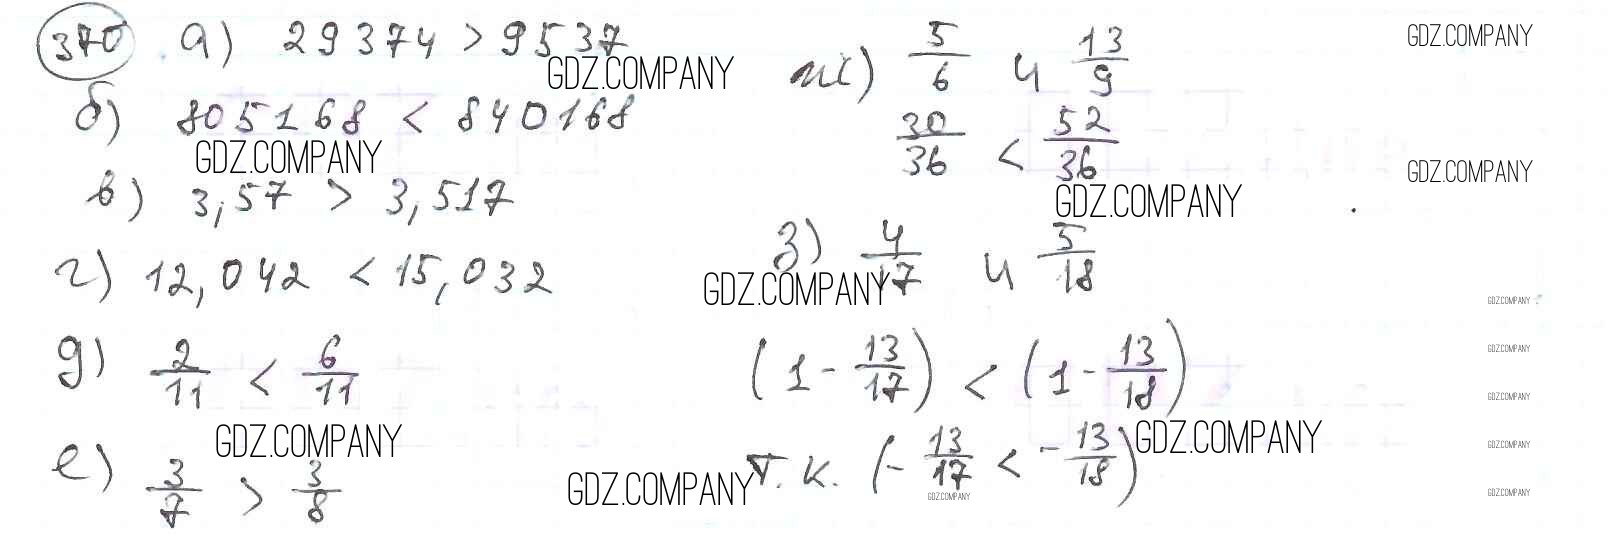 370. а) 29374 > 9537
GDZ.COMPANY
б) 805168 < 840168
GDZ.COMPANY
в) 3,57 > 3,517
г) 12,042 < 15,032
д) 2/11 < 6/11
GDZ.COMPANY
е) 3/7 > 3/8
GDZ.COMPANY
ж) 5/6 и 13/9
30/36 < 52/36
GDZ.COMPANY
з) 4/17 и 5/18
GDZ.COMPANY
(1 - 13/17) < (1 - 13/18)
GDZ.COMPANY
т.к. (- 13/17 < - 13/18)
GDZ.COMPANY
GDZ.COMPANY
GDZ.COMPANY
GDZ.COMPANY
GDZ.COMPANY
GDZ.COMPANY
GDZ.COMPANY
GDZ.COMPANY